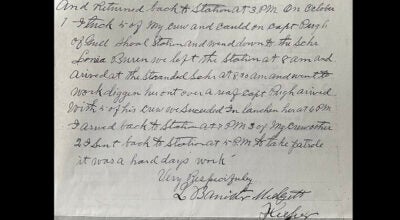 And Returned back to Station at 3 PM On October
1 I tuck 5 of My crew and cauld on Capt Pugh
of Gull Shoal Station and wend down to the Schr
Lonia Buren we left the Station at 8 am and
arived at the Stranded Schr at 8 30 am and went to
work diggen her out over a reaf Capt Pugh arived
With 5 of his crew we suceeded In lanchen her at 6 PM
I arived back to Station at 7 PM 3 of My Crew other
2 I Sent back to Station at 5 PM to take patrole
it was a hard days work
Very Respecifuly
L Banister Midgett
Keeper